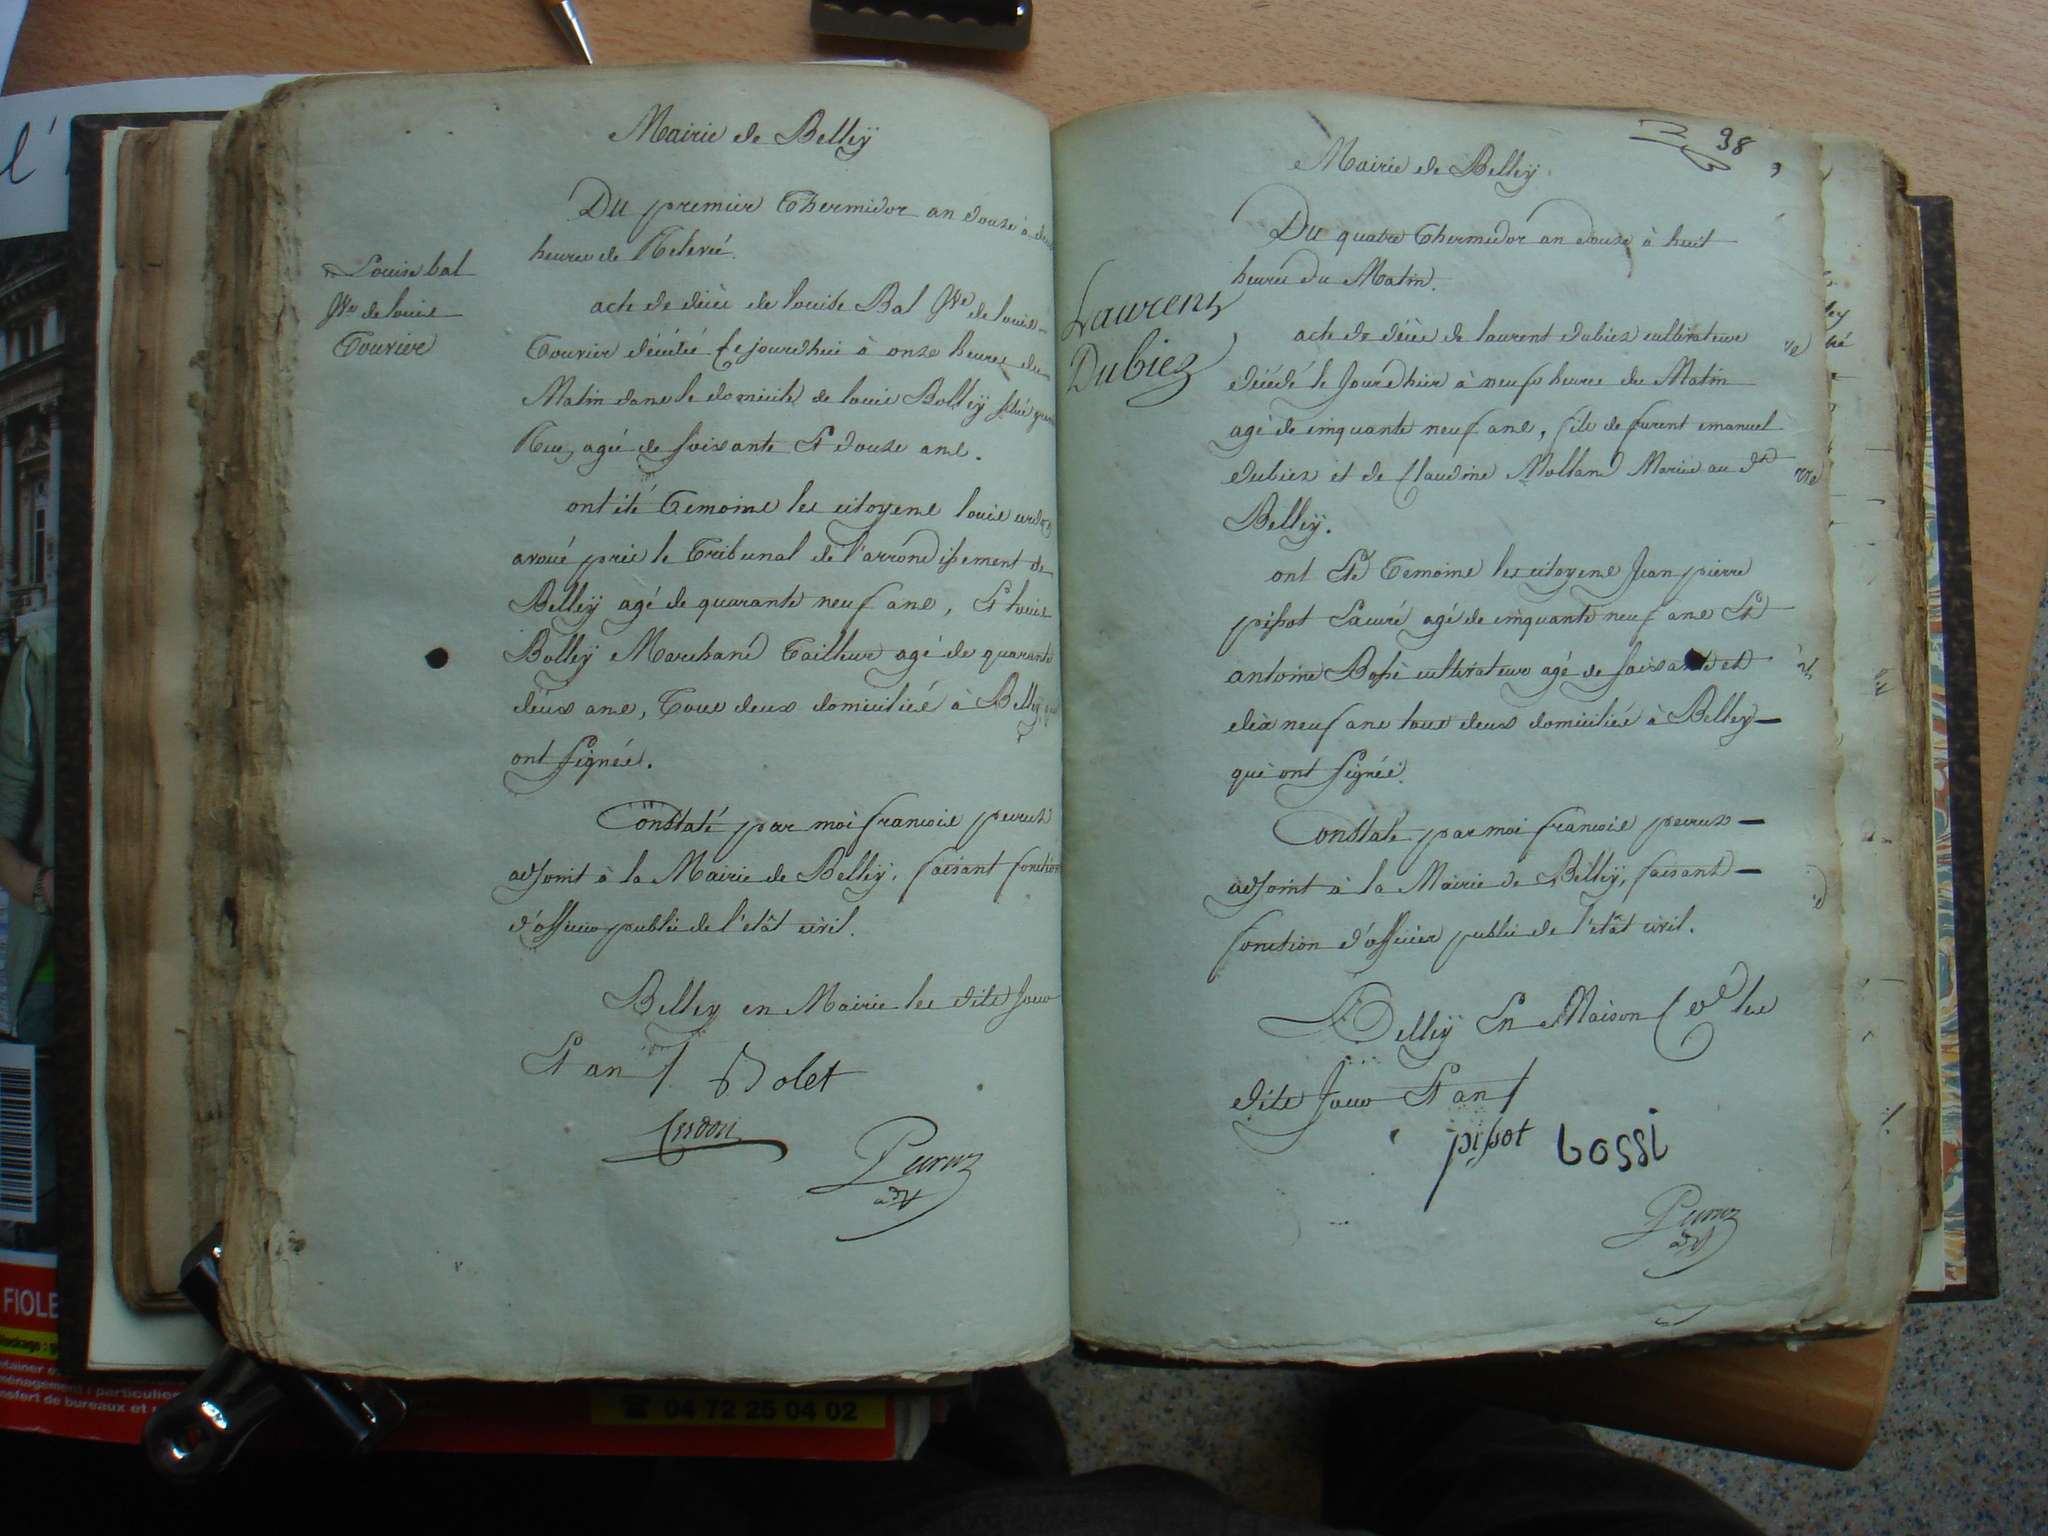 Mairie de Belleÿ
Du premier Thermidor an douze à deux
heures de Relevé.
Louise bal
Vve de louis
Tournier
acte de décès de louise Bal Vve de louis
Tournier décédée cejourdhui à onze heures du
Matin dans le domicile de louis Bolleÿ situé grande
Rue, agée de soixante et douze ans.
ont été Temoins les citoyens louis
avoué près le Tribunal de l'arrondissement de
Belleÿ agé de quarante neuf ans, et louis
Bolleÿ Marchand Tailleur agé de quarante
deux ans, Tous deux domiciliés à Belley, qui
ont signés.
Constaté par moi francois peuruz
adjoint à la Mairie de Belleÿ, faisant fonction
d'officier public de l'etât civil.
Belley en Mairie les dits Jour
et an
Bolet
Peuruz
adt
38
Mairie de Belleÿ.
Du quatre Thermidor an douze à huit
heures du Matin.
Laurent
Dubiez
acte de décès de laurent dubiez cultivateur
décédé le Jourdhier à neuf heures du Matin
agé de cinquante neuf ans, fils de furent emanuel
dubiez et de Claudine Mollard Mariés au dit
Belleÿ.
ont été Temoins les citoyens Jean pierre
pissot agé de cinquante neuf ans et
antoine Bossi cultivateur agé de soixante et
dix neuf ans tous deux domiciliés à Belley
qui ont signés.
Constaté par moi francois peuruz
adjoint à la Mairie de Belleÿ, faisant
fonction d'officier public de l'etât civil.
Belleÿ En Maison Cve les
dits Jour et an
pissot bossi
Peuruz
adt
FIOLE
particulier
nsfert de bureaux et
04 72 25 04 02